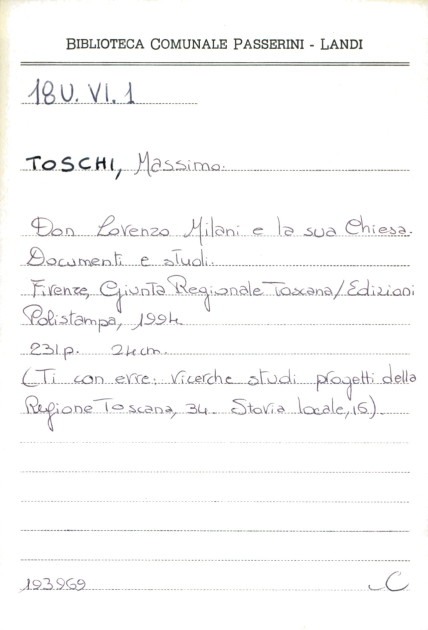 BIBLIOTECA COMUNALE PASSERINI - LANDI
18U. VI. 1
TOSCHI, Massimo.
Don Lorenzo Milani e la sua Chiesa.
Documenti e studi.
Firenze, Giunta Regionale Toscana/Edizioni
Polistampa, 1994.
231p. 24cm.
(Ti con erre: ricerche studi progetti della
Regione Toscana, 34. Storia locale, 15).
193969 C